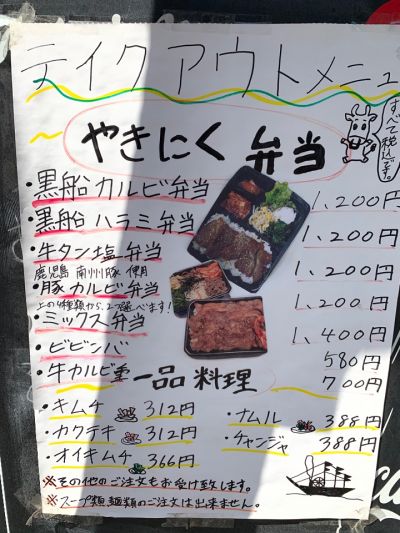 テイクアウトメニュ
すべて税込です。
やきにく弁当
・黒船カルビ弁当 1,200円
・黒船ハラミ弁当 1,200円
・牛タン塩弁当 1,200円
鹿児島 南州豚 使用
・豚カルビ弁当 1,200円
上の4種類から、2つ選べます!
・ミックス弁当 1,400円
・ビビンバ 580円
・牛カルビ重 700円
一品料理
・キムチ 312円
・ナムル 388円
・カクテキ 312円
・チャンジャ 388円
・オイキムチ 366円
※その他のご注文もお受け致します。
※スープ類 麺類のご注文は出来ません。